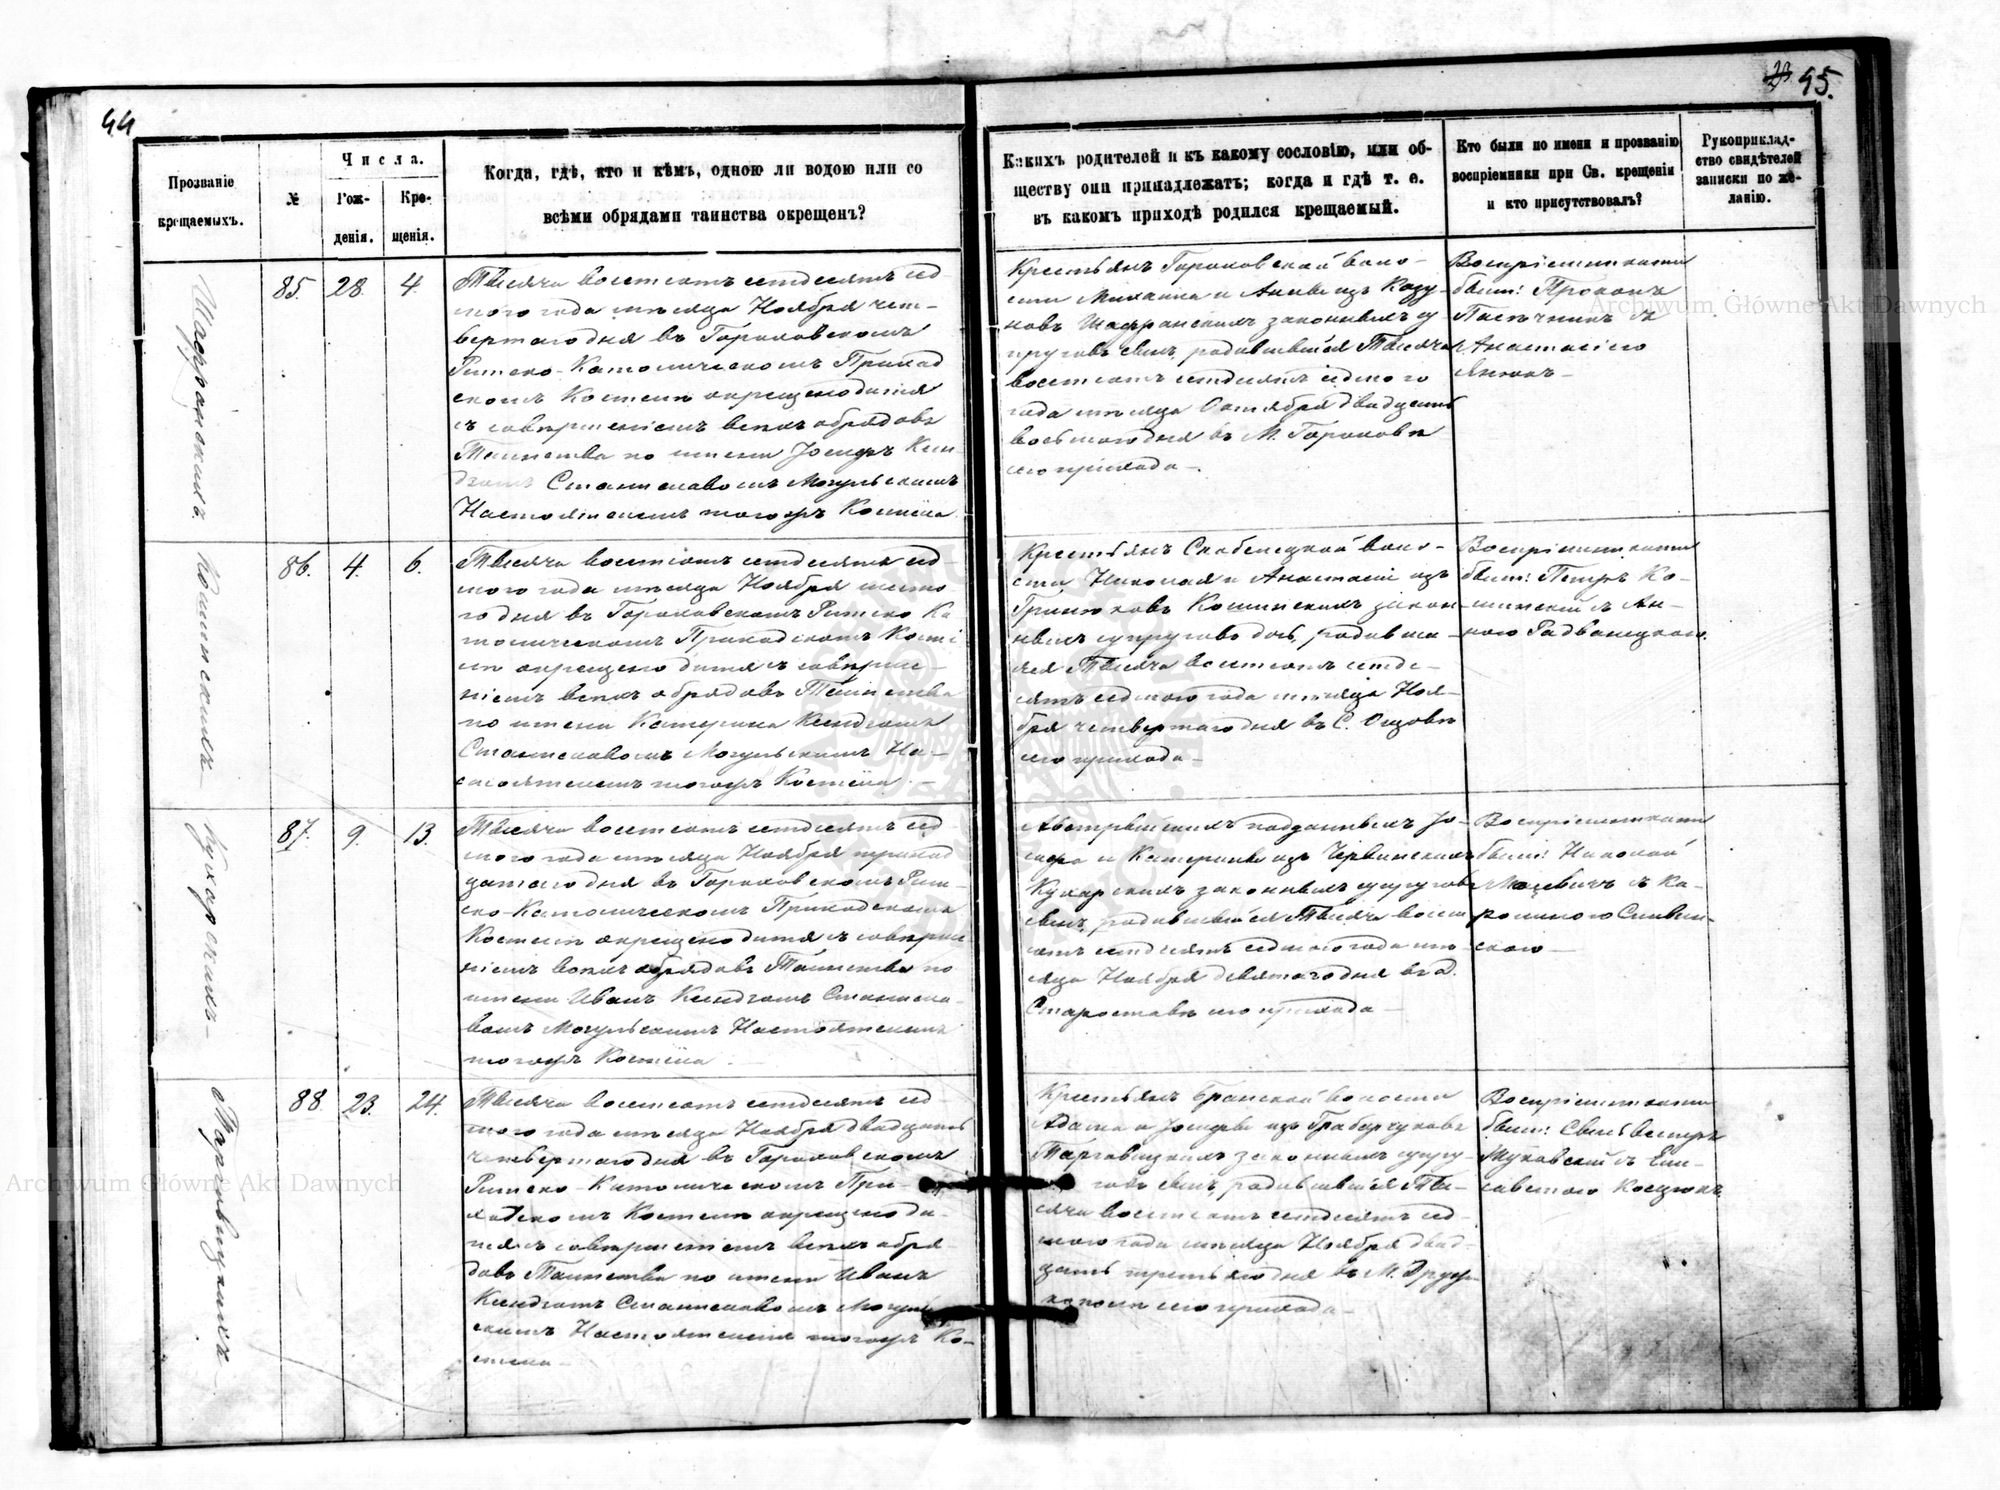 44
Прозваніе
крещаемыхъ.
№
Числа.
Рож-
денія.
Кре-
щенія.
Когда, гдѣ, кто и кѣмъ, одною ли водою или со
всѣми обрядами таинства окрещенъ?
85.
28.
4.
Тысяча восемсотъ семдесятъ сед-
мого года мѣсяца Ноября чет-
вертаго дня въ Гороховскомъ
Римско-Католическомъ Приход
скомъ Костелѣ окрещено дитя
съ совершеніемъ всѣхъ обрядовъ
Таинства по имени Іосифъ Ксен
дзомъ Станиславомъ Могульскимъ
Настоятелемъ тогожъ Костёла
Кошинскихъ
86.
4.
6.
Тысяча восемсотъ семдесятъ сед
мого года мѣсяца Ноября шесто
го дня въ Гороховскомъ Римско Ка
толическомъ Приходскомъ Костё
лѣ окрещено дитя съ соверше-
ніемъ всѣхъ обрядовъ Таинства
по имени Катерина Ксендзомъ
Станиславомъ Могульскимъ На-
стоятелемъ тогожъ Костёла. —
Кухарскихъ
87.
9.
13.
Тысяча восемсотъ семдесятъ сед
мого года мѣсяца Ноября тринад
цатаго дня въ Гороховскомъ Рим-
ско-Католическомъ Приходскомъ
Костелѣ окрещено дитя съ соверше
ніемъ всѣхъ обрядовъ Таинства по
имени Иванъ Ксендзомъ Станисла-
вомъ Могульскимъ Настоятелемъ
тогожъ Костёла. —
Тарговицкихъ
88
23.
24.
Тысяча восемсотъ семдесятъ сед-
мого года мѣсяца Ноября двадцать
четвертаго дня въ Гороховскомъ
Римско-Католическомъ При-
ходскомъ Костелѣ окрещено ди-
тя съ совершеніемъ всѣхъ обря-
довъ Таинства по имени Иванъ
Ксендзомъ Станиславомъ Могуль
скимъ Настоятелемъ тогожъ Ко-
стела —
45.
Какихъ родителей и къ какому сословію, или об-
ществу они принадлежатъ; когда и гдѣ т. е.
въ какомъ приходѣ родился крещаемый.
Кто были по имени и прозванію
воспріемники при Св. крещеніи
и кто присутствовалъ?
Рукоприклад-
ство свидѣтелей
записки по же-
ланію.
Крестьянъ Гороховской воло-
сти Михаила и Анны изъ Козу-
новъ законныхъ су
пруговъ сынъ, родившійся Тысяча
восемсотъ семдесятъ седмого
года мѣсяца Октября двадцать
восьмого дня въ М. Гороховѣ
сего прихода —.
Воспріемниками
были: Прокопъ
Пасѣчникъ съ
Анастасіею
Крестьянъ Скобелецкой воло-
сти Николая и Анастасіи изъ
Гринюковъ Кошинскихъ закон-
ныхъ супруговъ дочь, родивша-
яся Тысяча восемсотъ семде-
сятъ седмого года мѣсяца Ноя-
бря четвертаго дня въ С.
сего прихода —
Воспріемниками
были: Петръ Ко-
шинскій съ Ан-
ною Радванецкою.
Австрыйскихъ подданныхъ Іо-
сифа и Катерины изъ Червинскихъ
Кухарскихъ законныхъ супруговъ
сынъ, родившійся Тысяча восем
сотъ семдесятъ седмого года мѣ-
сяца Ноября девятаго дня въ д.
Староставѣ сего прихода —
Воспріемниками
были: Николай
съ Ка-
ролиною
скою —
Крестьянъ Бранской волости
Адама и Іосифы изъ Грабарчуковъ
Тарговицкихъ законныхъ супру-
говъ сынъ, родившійся Ты-
сяча восемсотъ семдесятъ сед-
мого года мѣсяца Ноября двад-
цать третьяго дня въ М. Друж-
кополѣ сего прихода —
Воспріемниками
были: Сильвестръ
съ Ели-
саветою
Archiwum Główne Akt Dawnych
Archiwum Główne Akt Dawnych